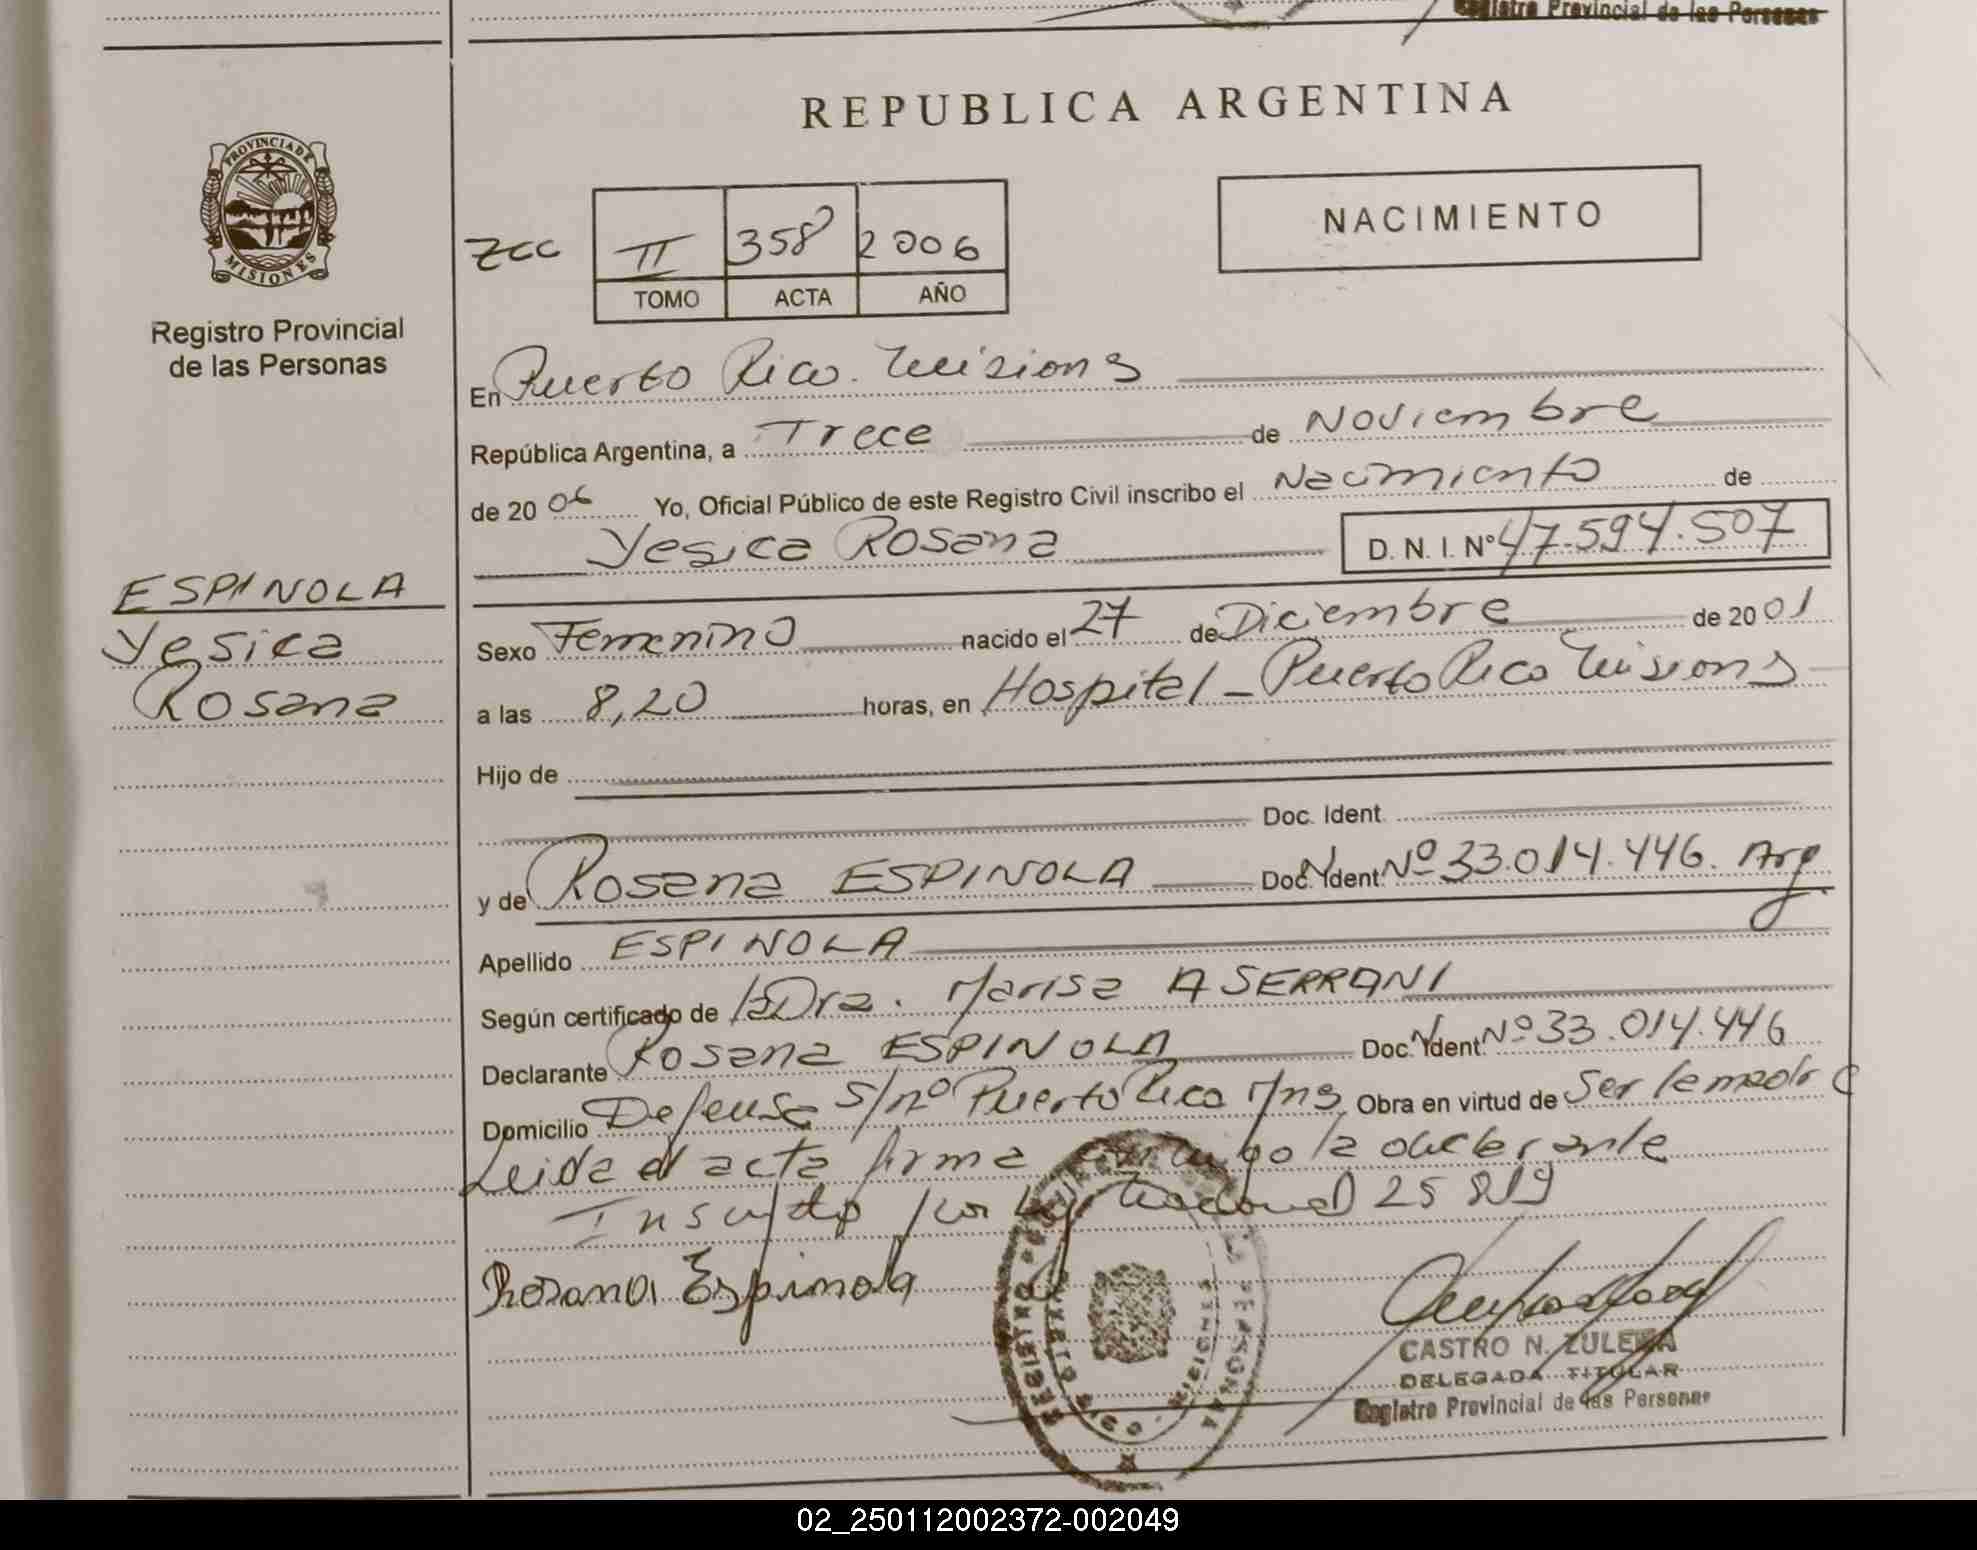 Registro Provincial de las Personas
REPUBLICA ARGENTINA
PROVINCIA DE
MISIONES
Registro Provincial
de las Personas
ZCC
II 358 2006
TOMO ACTA AÑO
NACIMIENTO
En Puerto Rico. Misiones
República Argentina, a Trece de Noviembre
de 2006 Yo, Oficial Público de este Registro Civil inscribo el Nacimiento de
Yesica Rosana D. N. I. Nº 47.594.507
ESPINOLA
Yesica
Rosana
Sexo Femenino nacido el 27 de Diciembre de 2001
a las 8,20 horas, en Hospital - Puerto Rico Misiones
Hijo de
Doc. Ident.
y de Rosana ESPINOLA Doc. Ident. Nº 33.014.446. Arg
Apellido ESPINOLA
Según certificado de la Dra. Marisa A SERRANI
Declarante Rosana ESPINOLA Doc. Ident. Nº 33.014.446
Domicilio Defensa S/nº Puerto Rico Mns Obra en virtud de Ser la madre
Leida el acta firma conmigo la declarante
Inscripto por Ley Nacional 25 819
Rosana Espinola
CASTRO N. ZULEMA
DELEGADA TITULAR
Registro Provincial de las Personas
02_250112002372-002049